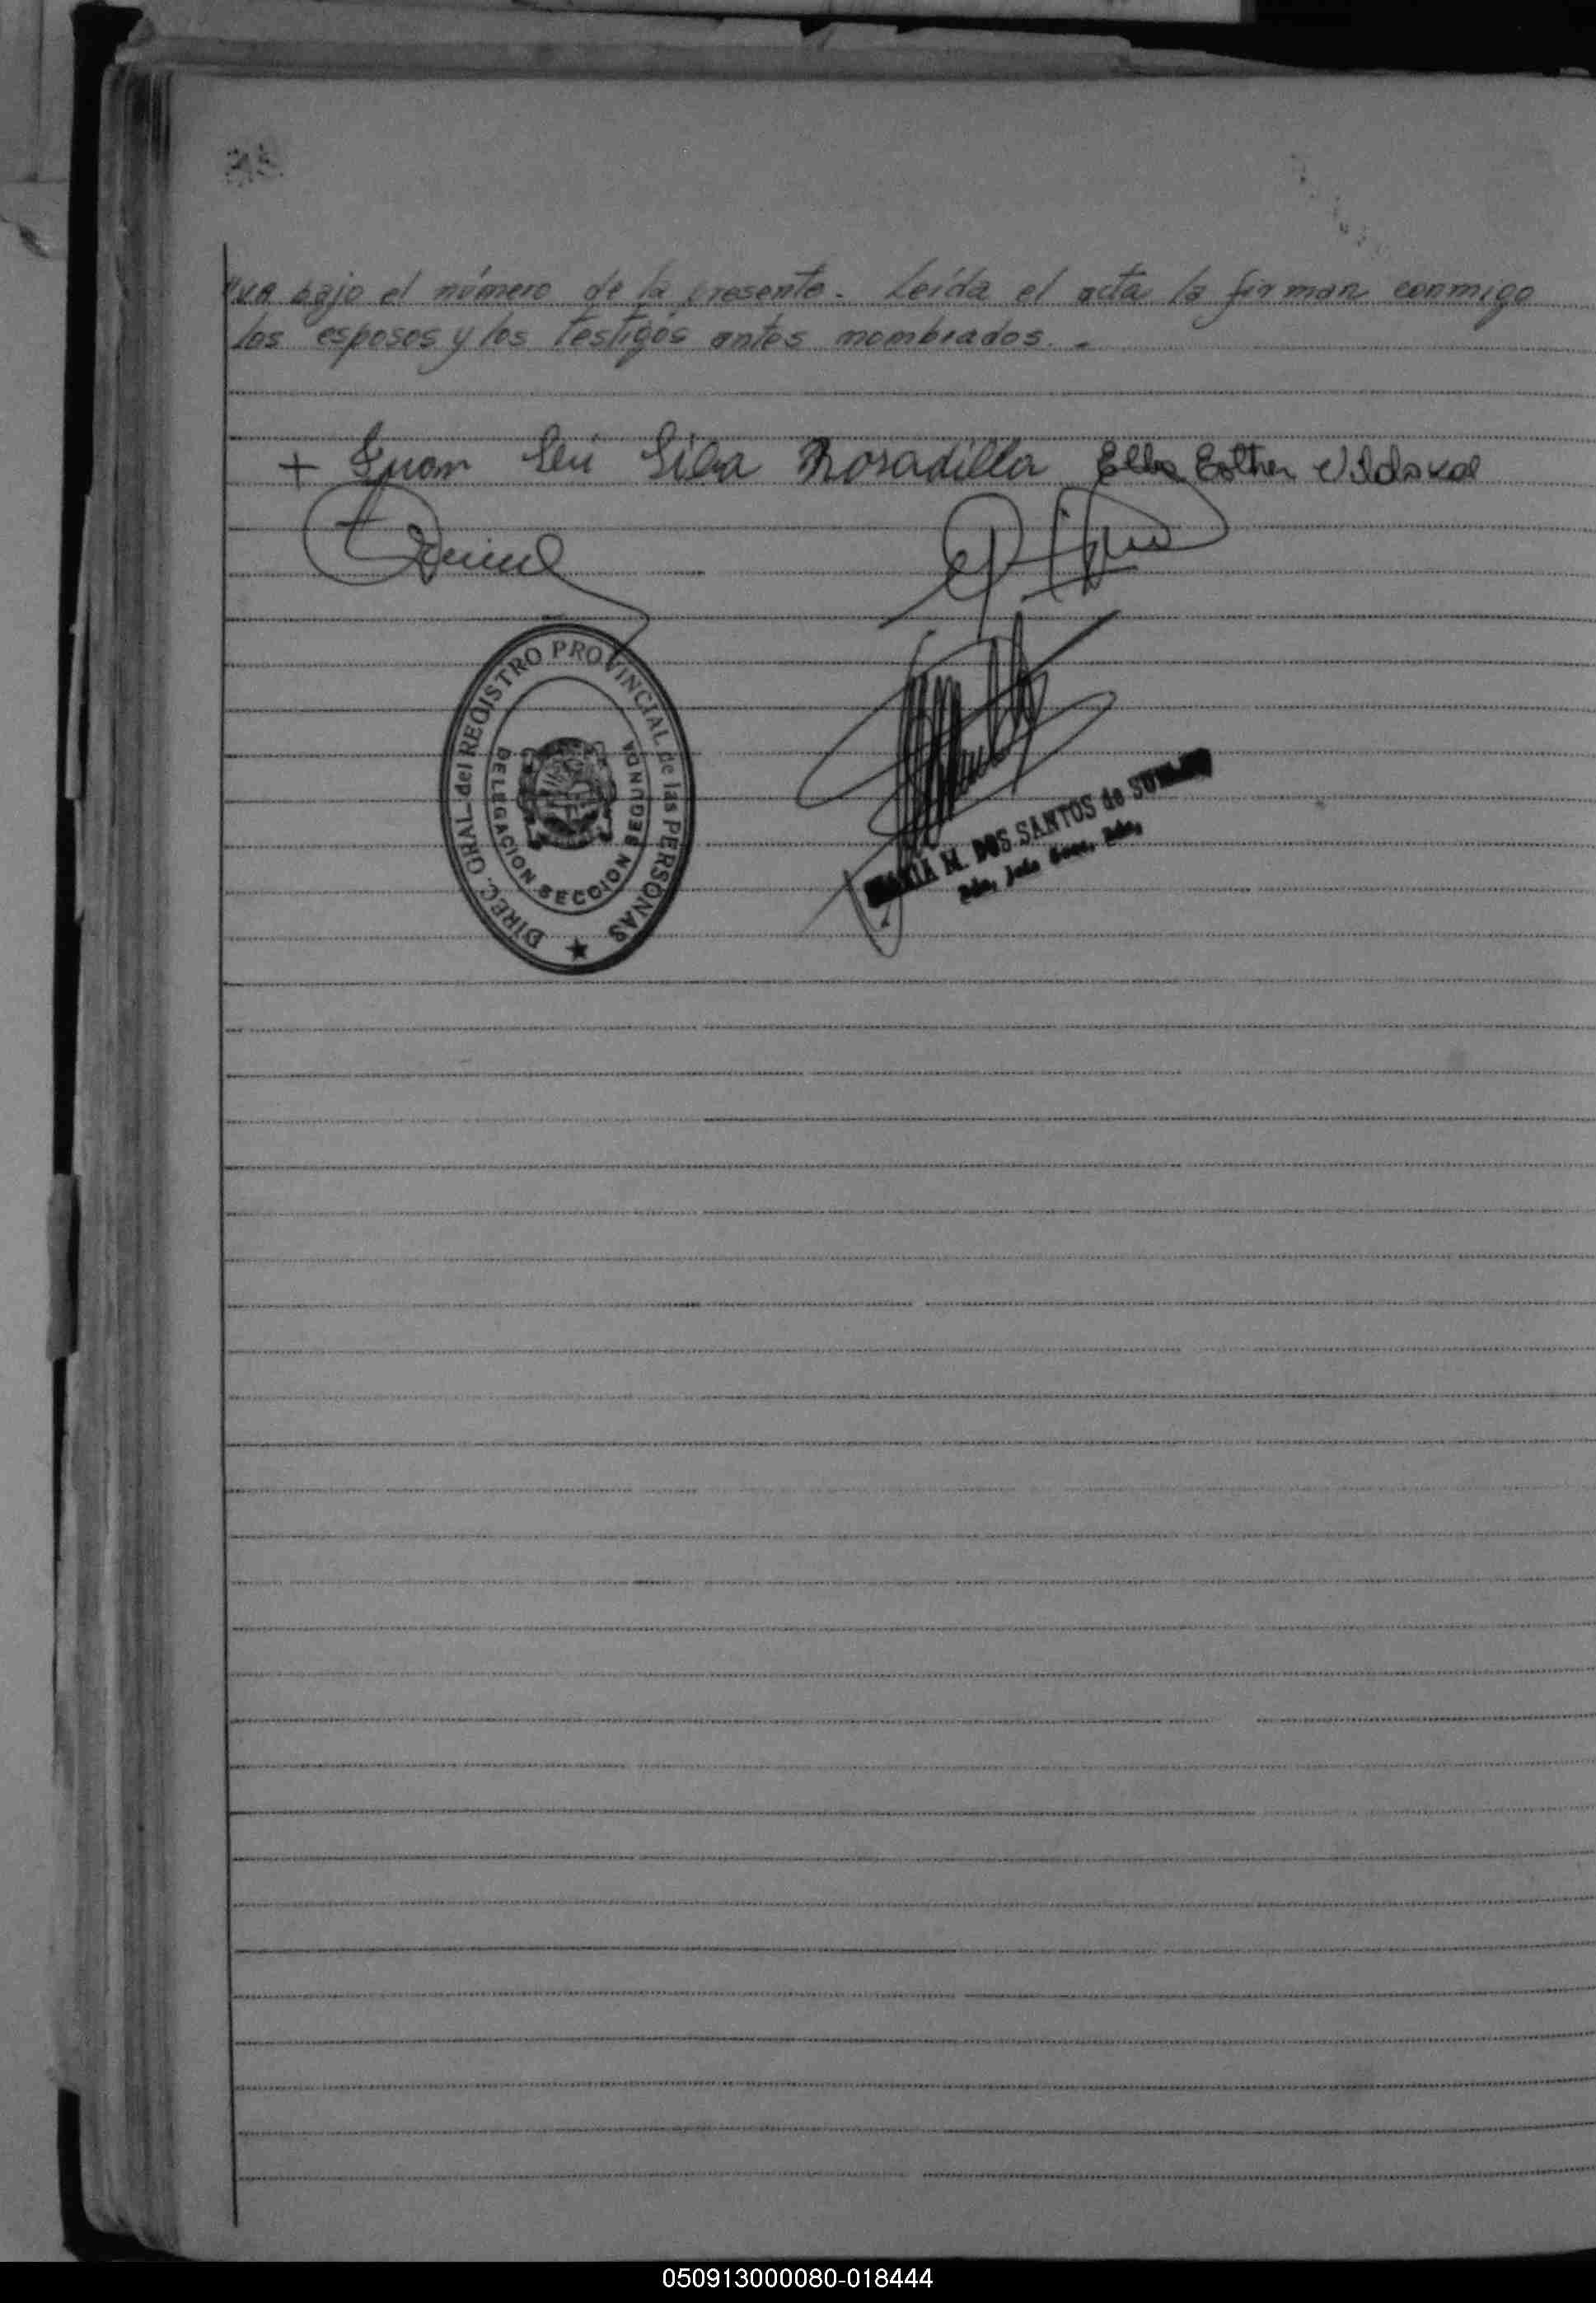 bajo el número de la presente. Leída el acta la firman conmigo
los esposos y los testigos antes nombrados. -
+ Juan Silva Rosadilla Elba Esther
DIREC. GRAL. del REGISTRO PROVINCIAL de las PERSONAS
DELEGACION SECCION SEGUNDA
MARIA M. DOS SANTOS de
050913000080-018444